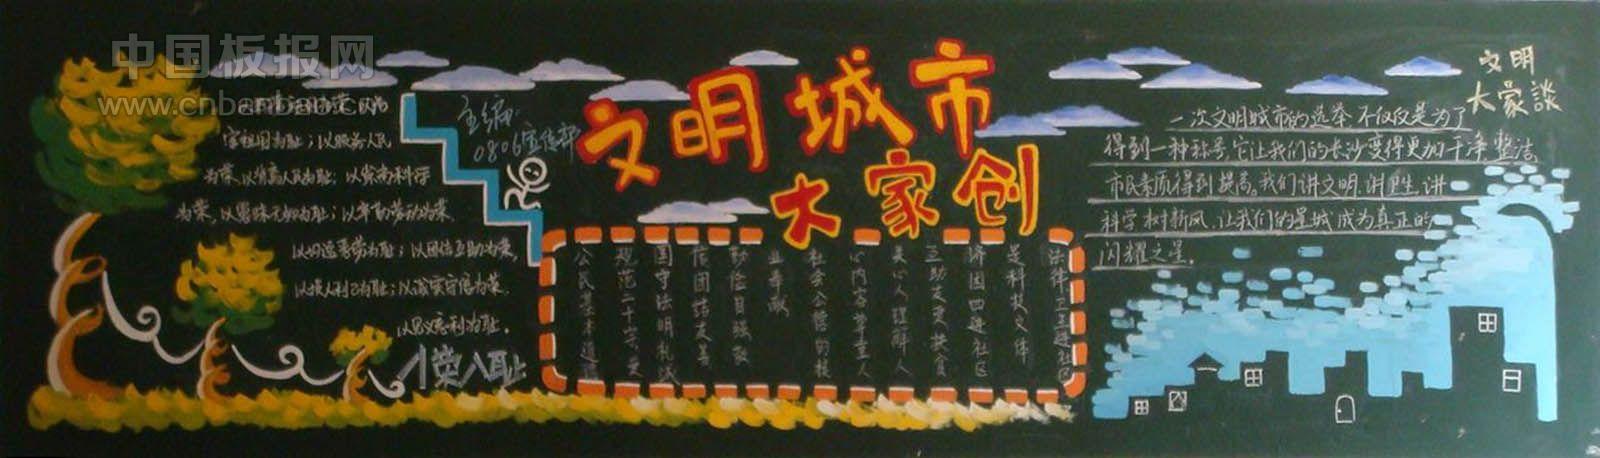 中国板报网
www.cnbanbao.com
文明城市
大家创
主编:
0806宣传部
害祖国为耻;以服务人民
为荣,以背离人民为耻;以崇尚科学
为荣,以愚昧无知为耻;以辛勤劳动为荣
以好逸恶劳为耻;以团结互助为荣,
以损人利己为耻;以诚实守信为荣,
以见义忘利为耻。
八荣八耻
法律卫生进社区
是科技文体
济困四进社区
互助友爱扶贫
关心人理解人
心内容尊重人
社会公德的核
业奉献
勤俭自强敬
信团结友善
国守法明礼诚
规范二十字爱
公民基本道德
文明
大家谈
一次文明城市的选举不仅仅是为了
得到一种称号,它让我们的长沙变得更加干净整洁,
市民素质得到提高。我们讲文明,讲卫生,讲
科学树新风,让我们的星城成为真正的
闪耀之星。